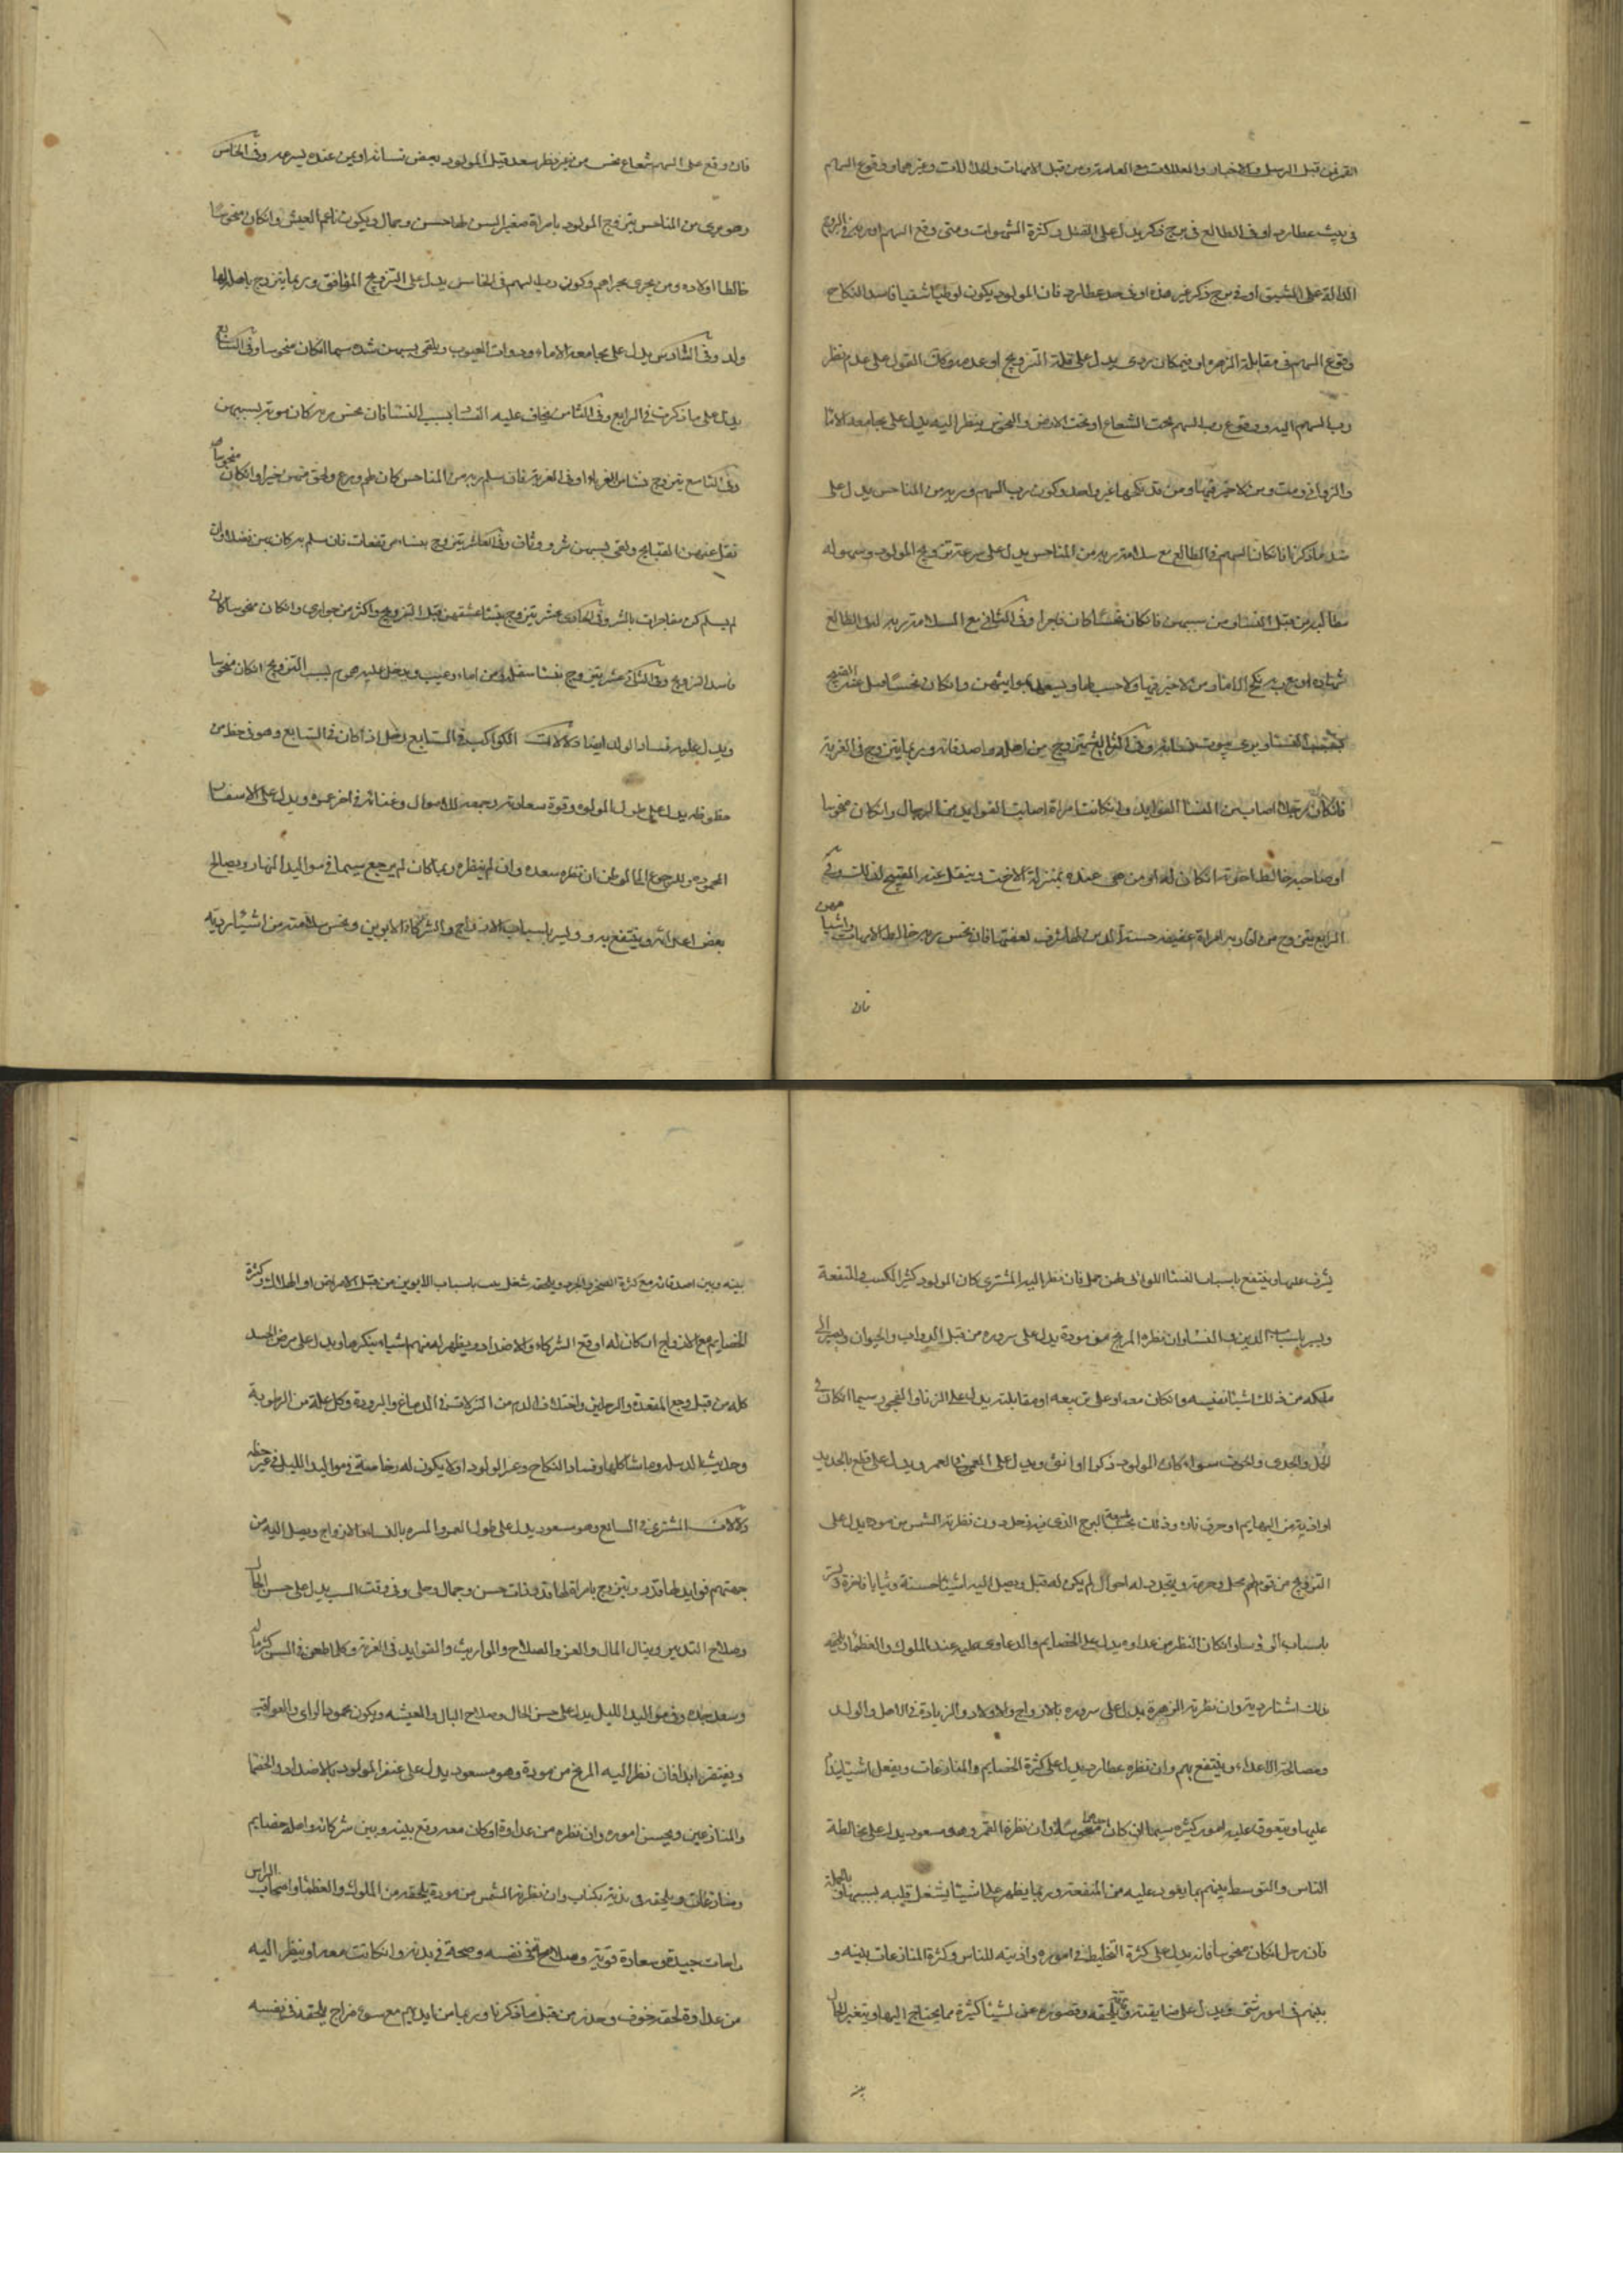 القمر فمن قبل الرسل والاخبار والمعاملات مع العامة ومن قبل الامهات والخالات وغيرهما ووقوع السهم
في بيت عطارد او في الطالع في برج ذكر يدل على القتل وكثرة الشهوات ومتى وقع السهم او ربه في البروج
الدالة على الشبق او في برج ذكر غير هذه او في حد عطارد فان المولود يكون لوطيا شقيا فاسد النكاح
ووقوع السهم في مقابلة الزهرة او فيمكان ردى يدل على قلة التزويج او عدمه وكذلك القول على عدم نظر
رب السهم اليه ووقوع رب السهم تحت الشعاع او تحت الارض والنحوس ينظر اليه يدل على مجامعة الاما
والزواني ومن لاخير فيها ومن قد نكحها غير واحد وكون رب السهم وربه من المناحس يدل على
ضد ما ذكرنا فانكان السهم في الطالع مع سلامة ربه من المناحس يدل على سرعة تزويج المولود وسهولة
مطالبه من قبل النسا ومن سببهن فانكان نحسا كان فاجرا وفي الثاني مع السلامة ربه لذلك الطالع
شهادة او ينكح الاما ومن لاخير فيها ولاحسب لها ويسعد بمواريثهن وانكان نحسا قيل عنه القبيح
بسبب النسا ويرى موت نسائه وفي الثالث يتزوج من اهله واصدقائه وربما يتزوج في الغربة
فانكان رجلا اصاب من النسا الفوايد وان كانت امراة اصابت الفوايد من الرجال وانكان منحوسا
او صاحبه خالط اخوته انكان له او من هي عنده بمنزلة الاخت وينقل عنه القبيح لذلك وفي
الرابع يتزوج من اقاربه امراة عفيفة حسنة الدين لها شرف لعفتها فان نحس ربه خالط الامهات واشباههن
فان
فان وقع على السهم شعاع نحس من غير نظر سعد قيل المولود بعض نسائه او من عنده بسرعة وفي الخامس
وهو برى من المناحس يتزوج المولود بامراة صغيرة السن لها حسن وجمال ويكون ناعم العيش وانكان منحوسا
خالط اولاده ومن يجرى مجراهم وكون رب السهم في الخامس يدل على التزويج الموافق وربما يتزوج باصل لها
ولد وفي السادس يدل على مجامعة الاماء وذوات العيوب ويلقى بسببهن شدة سيما انكان منحوسا وفي السابع
يدل على ما ذكرت في الرابع وفي الثامن يخاف عليه الفساد بسبب النسا فان نحس ربه كان موته بسببهن
وفي التاسع يتزوج نساء من الغرباء او في الغربة فان سلم ربه من المناحس كان لهم ورع ولحق منهن خيرا وانكان منحوسا
نقل عنهن القبايح ولقى بسببهن شرور وثاب وفي العاشر يتزوج بنساء مرتفعات فان سلم ربه كان بين فضلا وان
لم يسلم كن مفاجرات بالشر وفي الحادي عشر يتزوج بنسا عشقهن قبل التزويج واكثر من جوارى وانكان منحوسا كان
فاسد التزويج وفي الثاني عشر يتزوج بنسا سفلة ومن اماء وعيب ويدخل عليه هموم بسبب التزويج انكان منحوسا
ويدل عليه فساد الولد ايضا دلالات الكواكب في السابع زحل اذا كان في السابع وهو في حظ من
حظوظه يدل على طول المولود وقوة سعادته وجمعه للاموال وغنائه في اخر عمره ويدل على الاسفار
المحمودة والرجوع الى الوطن ان نظره سعده وان لم ينظره ربما كان لم يرجع سيما في مواليد النهار ويصالح
بعض اعدائه وينتفع به ويسر باسباب الازواج والشركاء والابوين ونحس سلامته من اشيا ردية
يشرف عليها وينتفع باسباب النسا اللواتي لهن حمل فان نظر اليه المشترى كان المولود كثير الكسب والمنفعة
ويسر باسباب الدين والنسا وان نظره المريخ من مودة يدل على سروره من قبل الدواب والحيوان ويصير الى
ملكه من ذلك اشيا نفيسه وانكان معه او على تربيعه او مقابلته يدل على الزنا والفجور سيما انكان في
الحمل والجدى والحوت سواء كان المولود ذكرا او انثى ويدل على العمر ويدل على قلع بالحديد
او اذية من البهايم او حرق نار وذلك بحسب البرج الذى فيه زحل وان نظرته الشمس من مودة يدل على
التزويج من قوم لهم محل وحرمة ويتجدد له احوال لم يكن له قبل ويصل اليه اشيا حسنة وثيابا فاخرة ويسر
باسباب الروسا وانكان النظر من عداوة يدل على الخصايم والدعاوى عليه عند الملوك والعظما ويلحقه
بذلك اشيا ردية وان نظرته الزهرة يدل على سروره بالازواج والاولاد والزيادة في الاهل والولد
ومصالحة الاعداء وينتفع بهم وان نظره عطارد يدل على كثرة الخصايم والمنازعات ويفعل اشيا يندم
عليها ويتعوق عليه امور كثيرة سيما ان كان منحوسا وان نظره القمر وهو مسعود يدل على مخالطة
الناس والتوسط بينهم بما يعود عليه من المنفعة وربما يظهر على اشيا يشغل قلبه بسببها وبالجملة
فان زحل انكان منحوسا فانه يدل على كثرة التخليط في اموره واذيته للناس وكثرة المنازعات بينه و
بينهم في امور شتى ويدل على ضايقة تلحقه وقصوره عن اشيا كثيرة مما يحتاج اليها ويتغير الحال
بينه
بينه وبين اصدقائه مع كثرة الضجر والحرد ويلحقه شغل بباسباب الابوين من قبل الامراض او الهلاك وكثرة
الخصايم مع الازواج ان كان له او مع الشركاء والاضداد ويظهر له منهم اشياء ينكرها ويدل على مرض الجسد
كله من قبل وجع المقعدة والرجلين واختلاف الدم من النزلات في الدماغ والبرودة وكل علة من الرطوبة
وحديث الدسلة وما شاكلها وفساد النكاح وعسر الولود اولا يكون له وخاصة في مواليد الليل في غير حظه
دلالات المشترى في السابع وهو مسعود يدل على طول العمر والمسرة بالنساء والازواج ويصل اليه من
جهتهم فوايد لها قدر ويتزوج بامراة لها قدر وذات حسن وجمال وحلى وفي وقت السبب يدل على حسن الحال
وصلاح التدبير وينال المال والعز والصلاح والمواريث والفوايد في الغربة وكلما طعن في السن كثر ماله
وسعد جده وفي مواليد الليل يدل على حسن الحال وصلاح البال والمعيشة ويكون محمود الراى والعواقب
ويفتقر ابدا فان نظر اليه المريخ من مودة وهو مسعود يدل على ظفر المولود بالاضداد والخصما
والمنازعين ويحسن اموره وان نظره من عداوة او كان معه وقع بينه وبين شركائه واهله خصايم
ومنازعات ويلحقه في بدنه بكتاب وان نظرته الشمس من مودة يلحقه من الملوك والعظما واصحاب الراس
راحات جيدة وسعادة قوية وصلاح في نفسه وصحة في بدنه وانكانت معه او ينظر اليه
من عداوة لحقه خوف وحذر من قبل ما ذكرنا وربما من ايديهم مع سوء مزاج يلحقه في نفسه